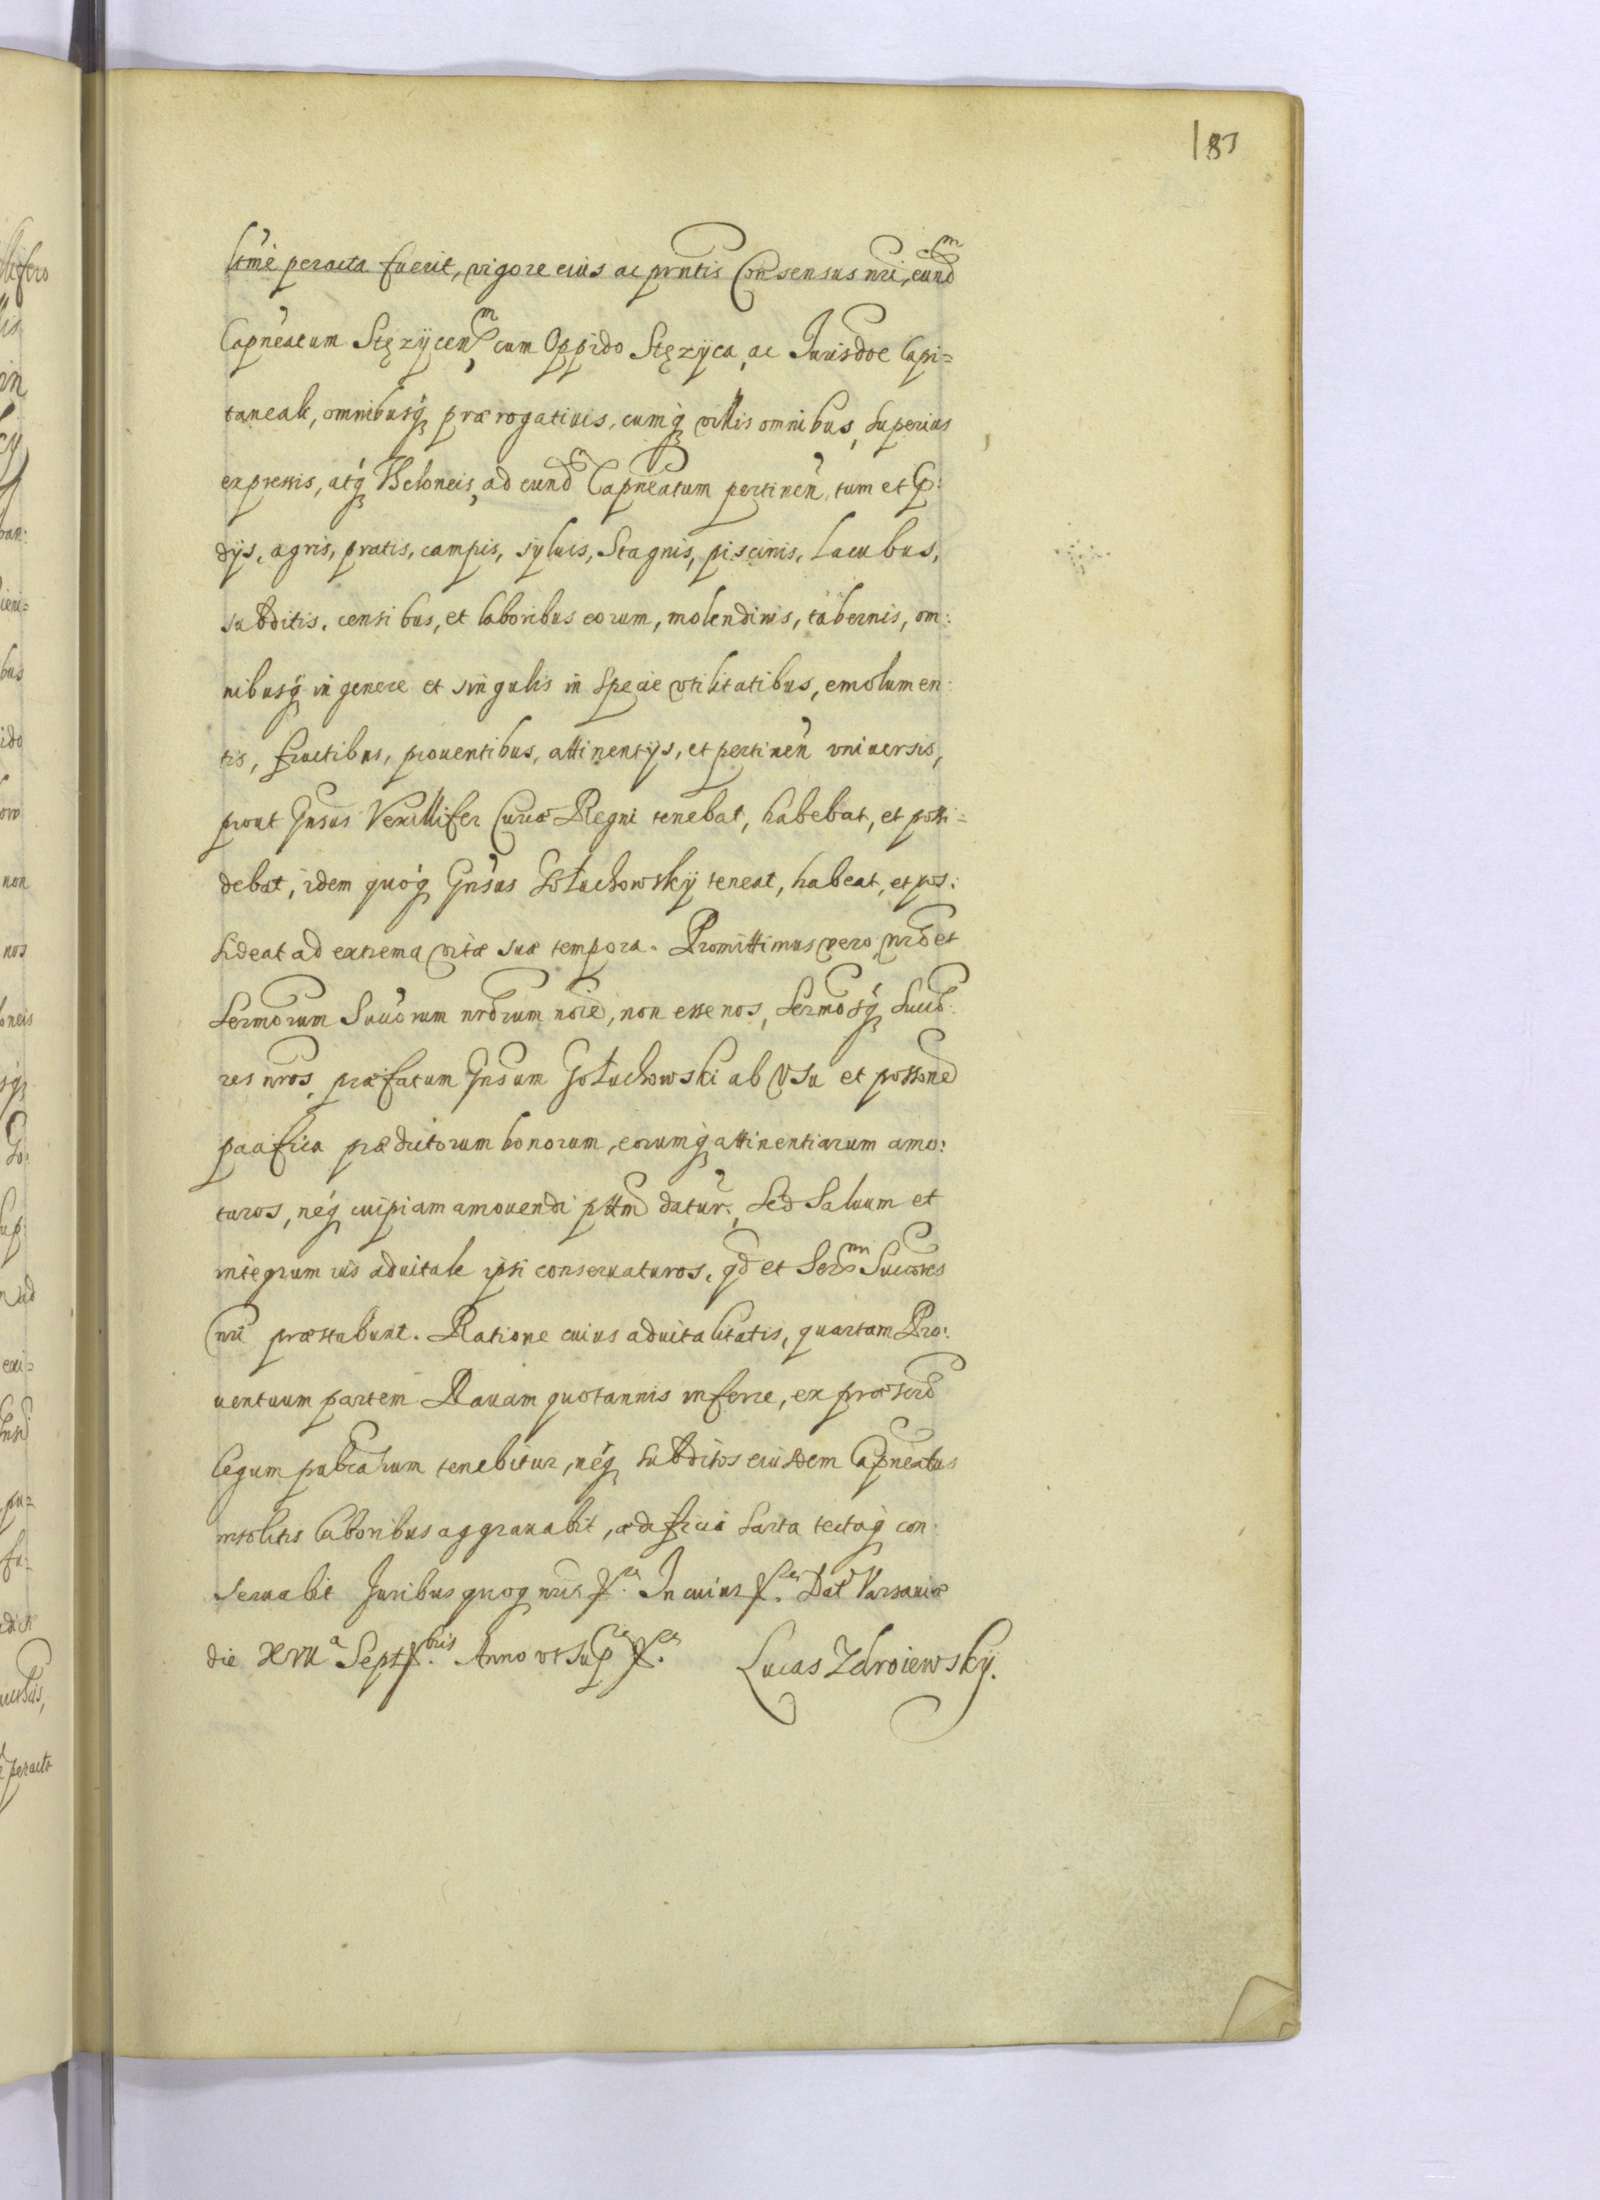 187
ltme peracta fuerit, vigore eius ac pntis Consensus nri, eund
Capneatum Stęzÿcen, cum Oppido Stęzÿca, ac Jurisdoe Capi=
taneali, omnibusq, prærogatiuis, cumq villis omnibus, superius
expressis, atq Theloneis, ad eund Capneatum pertinen, tum et
dijs, agris, pratis, campis, syluis, Stagnis, piscinis, Lacubus,
subditis, censibus, et laboribus eorum, molendinis, tabernis, om:
nibusq in genere et singulis in specie vtilitatibus, emolumen:
tis, fructibus, prouentibus, attinentijs, et pertinen vniuersis,
prout Gnsus Vexillifer Curiæ Regni tenebat, habebat, et possi=
debat, idem quoq Gnsus Gołuchowskÿ teneat, habeat, et pos:
sideat ad extrema vitæ suæ tempora. Promittimus vero, nro et
Sermorum Succorum nrorum noie, non esse nos, Sermosq Succo:
res nros, præfatum Gnsum Gołuchowski ab Vsu et possone
pacifica prædictorum bonorum, eorumq attinentiarum amo:
turos, neq cuipiam amouendi pttm daturos, Sed Saluum et
integrum ius aduitale ipsi conseruaturos, qd et Sermi Succores
nri præstabunt. Ratione cuius aduitalitatis, quartam Pro:
uentuum partem Rauam quotannis inferre, ex præscro
legum publcarum tenebitur, neq subditos eiusdem Capneatus
insolitis laboribus aggrauabit, ædificia sarta tectaq con:
seruabit Juribus quoq nris In cuius Dat Varsauiæ
die XVII a Septbris. Anno vt sup Lucas Zdroiewskÿ.